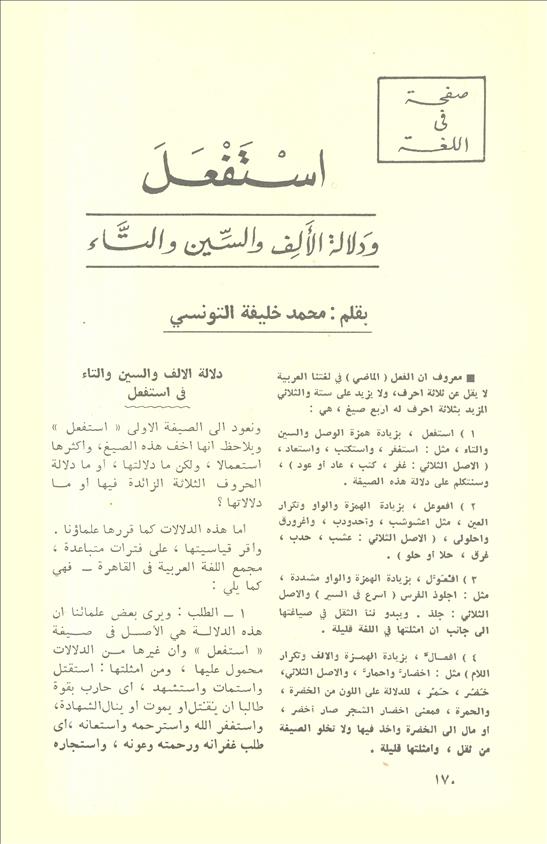 صفحة
فى
اللغة
اسْتَفْعَلَ
ودلالة الأَلِف والسِّين والتَّاء
بقلم : محمد خليفة التونسي
■ معروف ان الفعل ( الماضي ) في لغتنا العربية
لا يقل عن ثلاثة احرف، ولا يزيد على ستة والثلاثي
المزيد بثلاثة احرف له اربع صيغ ، هي :
١ ) استفعل ، بزيادة همزة الوصل والسين
والتاء ، مثل : استغفر ، واستكتب ، واستعاد ،
( الاصل الثلاثي : غفر ، كتب ، عاد أو عود ) ،
وسنتكلم على دلالة هذه الصيغة .
٢ ) افعوعل ، بزيادة الهمزة والواو وتكرار
العين ، مثل اعشوشب ، واحدودب ، واغرورق
واحلولى ، ( الاصل الثلاثي : عشب ، حدب ،
غرق ، حلا أو حلو ) .
٣ ) افعوّل ، بزيادة الهمزة والواو مشددة ،
مثل : اجلوذ الفرس ( اسرع في السير ) والاصل
الثلاثي : جلذ . ويبدو لنا الثقل في صياغتها
الى جانب ان امثلتها في اللغة قليلة .
٤ ) افعالّ ، بزيادة الهمزة والالف وتكرار
اللام ) مثل : اخضارّ واحمارّ ، والاصل الثلاثي،
خضر ، حمر ، للدلالة على اللون من الخضرة ،
والحمرة ، فمعنى اخضار الشجر صار أخضر ،
او مال الى الخضرة واخذ فيها ولا تخلو الصيغة
من ثقل ، وامثلتها قليلة .
دلالة الالف والسين والتاء
فى استفعل
ونعود الى الصيغة الاولى « استفعل »
ويلاحظ انها اخف هذه الصيغ، واكثرها
استعمالا ، ولكن ما دلالتها ، أو ما دلالة
الحروف الثلاثة الزائدة فيها أو ما
دلالاتها ؟
اما هذه الدلالات كما قررها علماؤنا .
وأقر قياسيتها ، على فترات متباعدة ،
مجمع اللغة العربية فى القاهرة ــ فهي
كما يلي :
١ ــ الطلب : ويرى بعض علمائنا ان
هذه الدلالة هي الأصل فى صيغة
« استفعل » وأن غيرها من الدلالات
محمول عليها ، ومن امثلتها : استقتل
واستمات واستشهد ، اى حارب بقوة
طالبا ان يُقتل او يموت او ينال الشهادة،
واستغفر الله واسترحمه واستعانه ،اى
طلب غفرانه ورحمته وعونه ، واستجاره
١٧٠